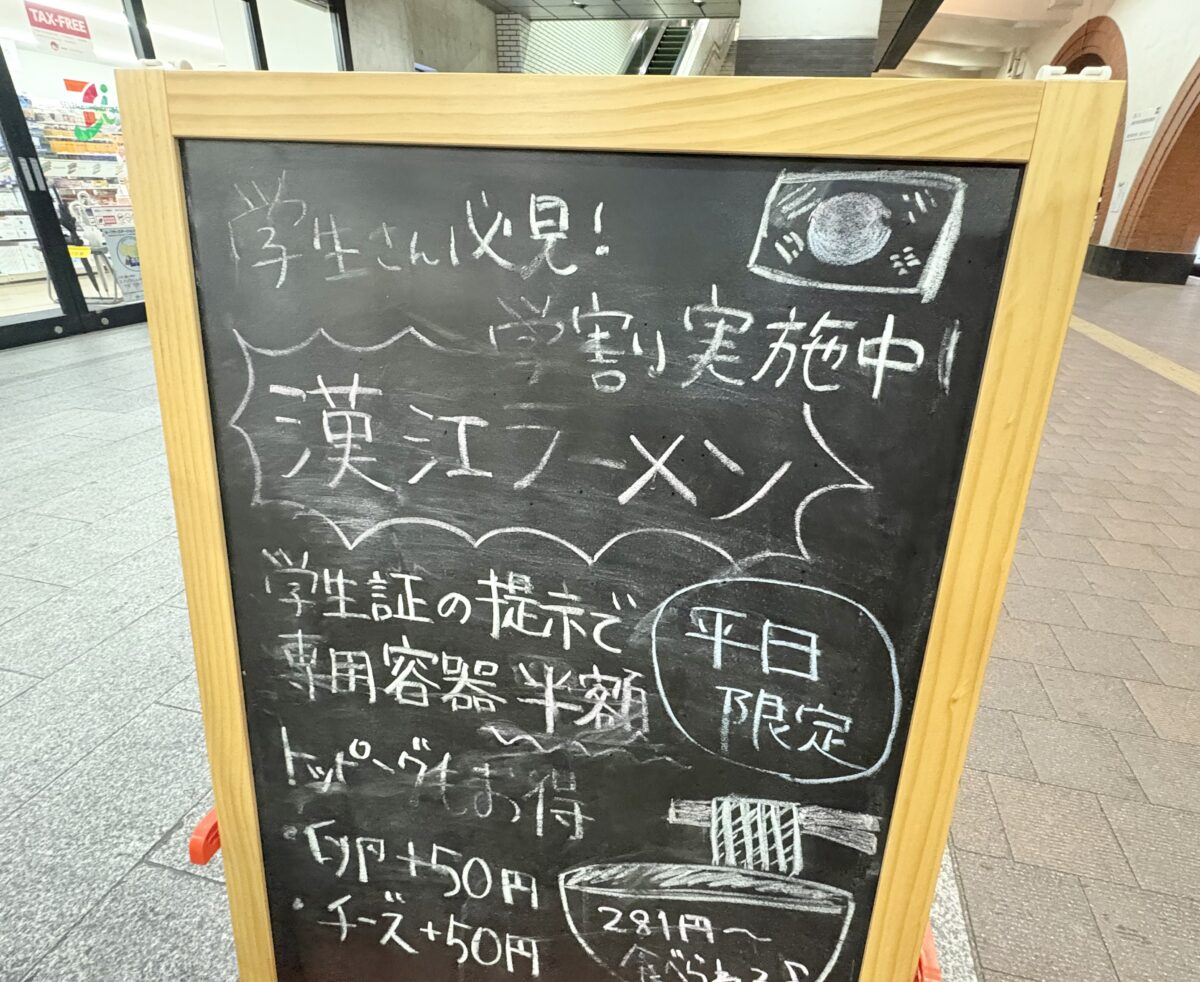 TAX-FREE
学生さん必見!
学割実施中!
漢江ラーメン
学生証の提示で
専用容器半額
平日
限定
トッピングもお得
・卵+50円
・チーズ+50円
281円～
食べられる♪